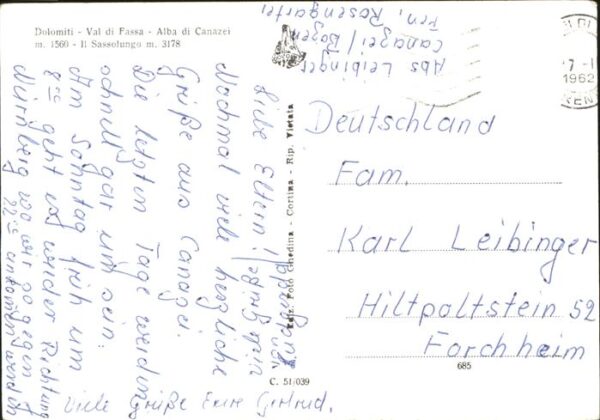 Dolomiti - Val di Fassa - Alba di Canazei
m. 1560 - Il Sassolungo m. 3178
Abs Leibinger
Canazei / Bozen
Pen. Rosengarten
7-1
1962
Liebe Eltern!
Nochmal viele herzliche
Grüße aus Canazei.
Die letzten Tage werden
schnell gar um sein.
Am Sonntag früh um
8 geht es wieder Richtung
Nürnberg wo wir so gegen
22 ankommen werden
Viele Grüße Eure Gertrud.
Ediz. Foto Ghedina - Cortina - Rip. Vietata
Deutschland
Fam.
Karl Leibinger
Hiltpoltstein 52
Forchheim
C. 51/039
685